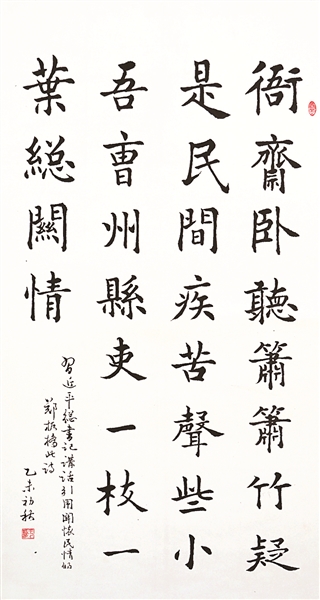 衙齋卧聽簫簫竹疑
是民間疾苦聲些小
吾曹州縣吏一枝一
葉總關情
習近平總書記講話引用關懷民情的
鄭板橋此詩
乙未初秋